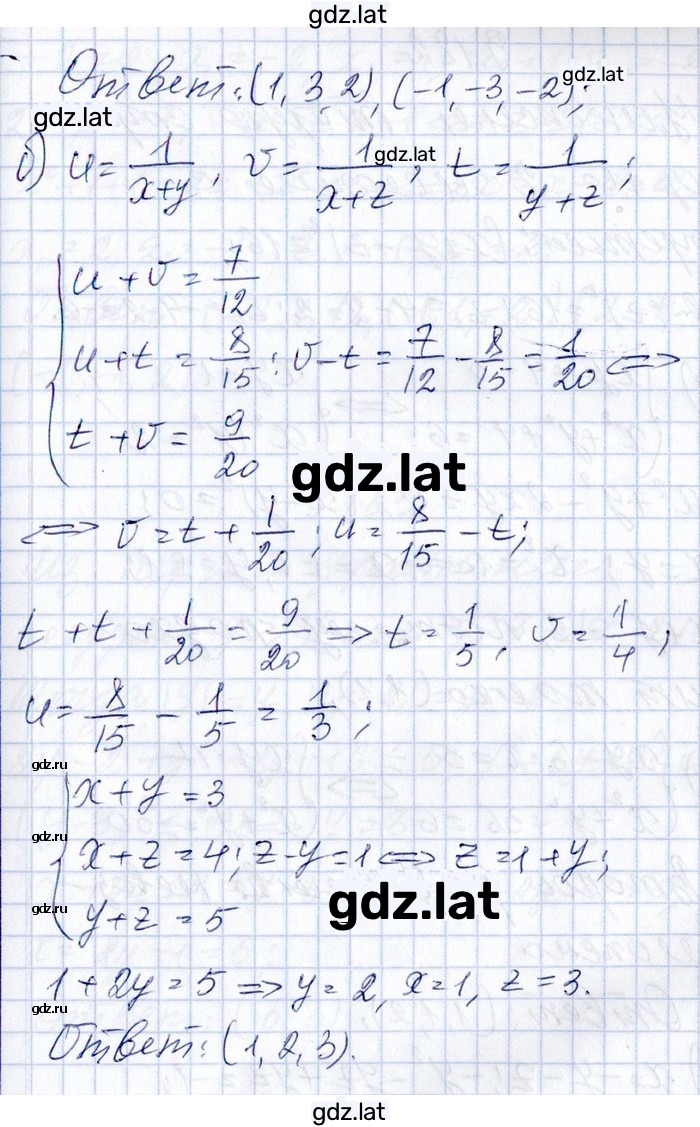 gdz.lat
Ответ: (1, 3, 2), (-1, -3, -2);
gdz.lat
gdz.lat
б) u = 1/(x+y), v = 1/(x+z), t = 1/(y+z);
gdz.lat
u + v = 7/12
u + t = 8/15; v - t = 7/12 - 8/15 = 1/20 ⟺
t + v = 9/20
gdz.lat
⟺ v = t + 1/20; u = 8/15 - t;
t + t + 1/20 = 9/20 ⟹ t = 1/5, v = 1/4;
u = 8/15 - 1/5 = 1/3;
gdz.ru
x + y = 3
gdz.ru
x + z = 4; z - y = 1 ⟺ z = 1 + y;
gdz.lat
gdz.ru
y + z = 5
1 + 2y = 5 ⟹ y = 2, x = 1, z = 3.
gdz.ru
Ответ: (1, 2, 3).
gdz.lat